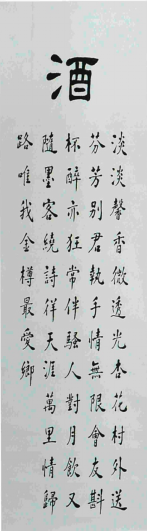 酒
淡淡馨香微透光杏花村外送
芬芳別君執手情無限會友斟
杯醉亦狂常伴騷人對月飲又
隨墨客繞詩徉天涯萬里情歸
路唯我金樽最愛鄉